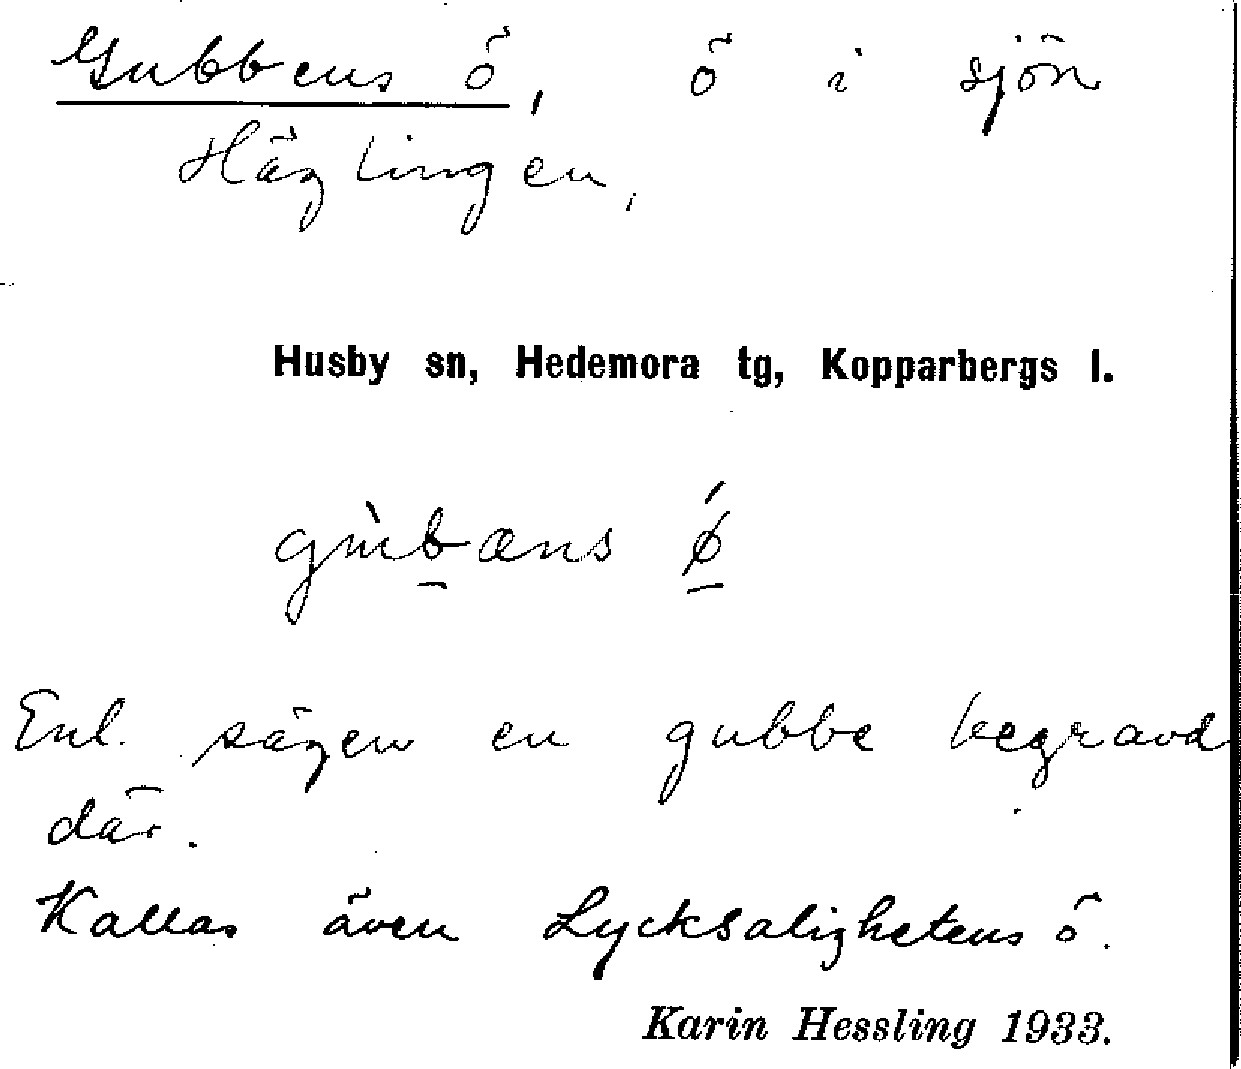 Gubbens ö, ö i sjön
Häglingen,
Husby sn, Hedemora tg, Kopparbergs l.
gùbæns ǿ
Enl. sägen en gubbe begravd
där.
Kallas även Lycksalighetens ö.
Karin Hessling 1933.